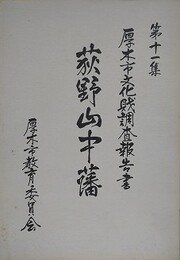 第十一集
厚木市文化財調査報告書
荻野山中藩
厚木市教育委員会